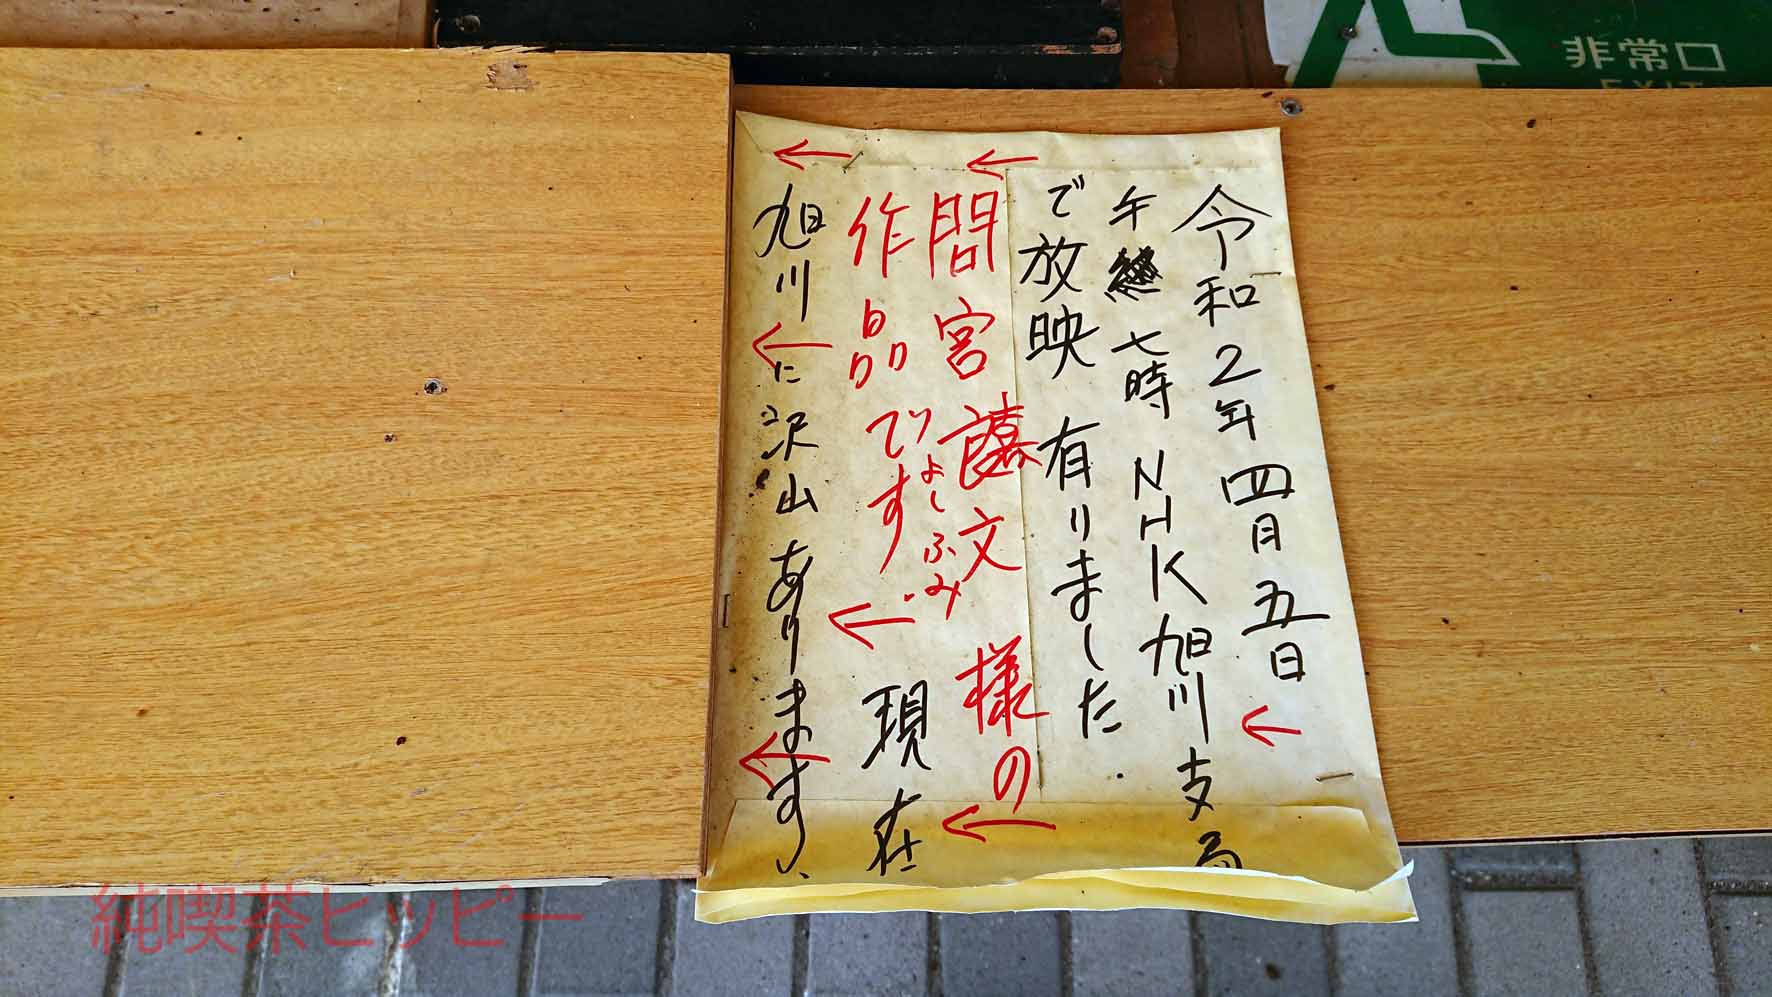 非常口
EXIT
令和2年四月五日
午 七時NHK旭川支局
で放映有りました
間宮 文様の
よしふみ
作品です 現在
旭川に沢山あります
純喫茶ヒッピー